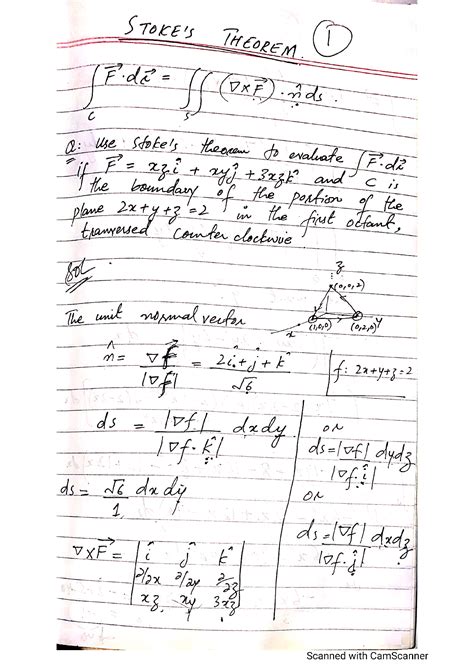 STOKE'S THEOREM. 1
∫_C F⃗·dr⃗ = ∬_S (∇×F⃗)·n̂ ds.
Q: Use Stoke's theorem to evaluate ∫F⃗·dr⃗
if F⃗ = xz î + xy ĵ + 3xz k̂ and C is
the boundary of the portion of the
plane 2x+y+z=2 in the first octant,
tranversed counter clockwise
Sol
z
(0,0,2)
(1,0,0) (0,2,0) y
x
The unit normal vector
n̂ = ∇f⃗/|∇f| = (2î+ĵ+k̂)/√6
f: 2x+y+z=2
ds = |∇f|/|∇f·k̂| dxdy
or
ds=|∇f|/|∇f·î| dydz
or
ds = √6/1 dxdy
ds=|∇f|/|∇f·ĵ| dxdz
∇×F⃗ = | î ĵ k̂
∂/∂x ∂/∂y ∂/∂z
xz xy 3xz |
Scanned with CamScanner